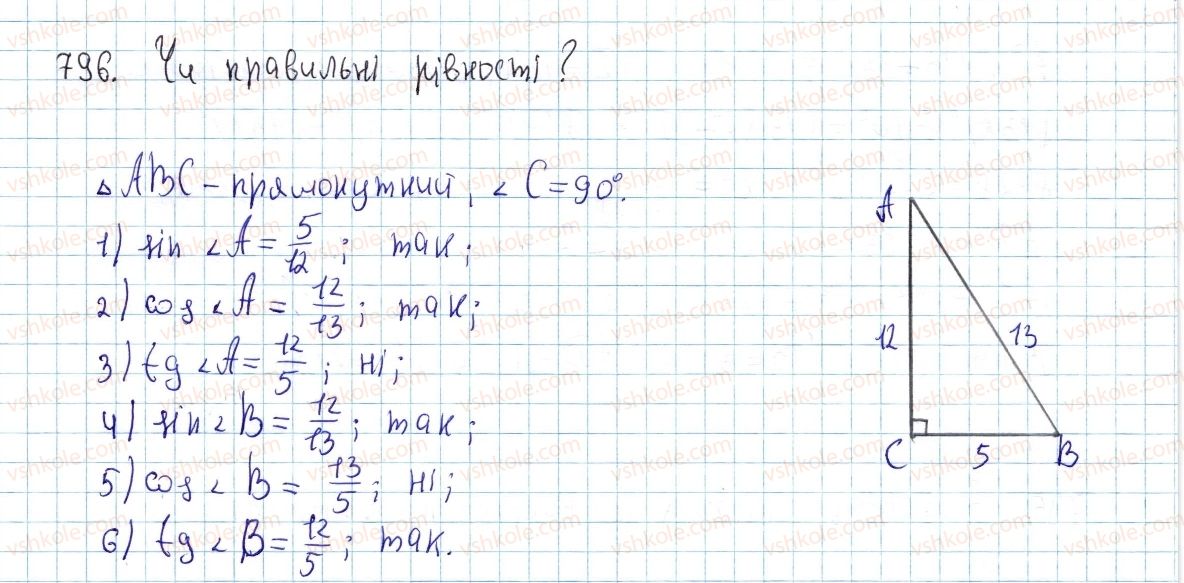 796. Чи правильні рівності?
△ABC – прямокутний, ∠C=90°.
1) sin ∠A = 5/12; так;
2) cos ∠A = 12/13; так;
3) tg ∠A = 12/5; ні;
4) sin ∠B = 12/13; так;
5) cos ∠B = 13/5; ні;
6) tg ∠B = 12/5; так.
A
12
13
C
5
B
vshkole.com